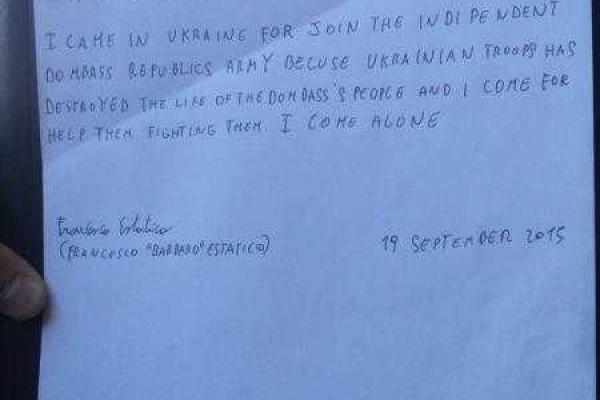 I CAME IN UKRAINE FOR JOIN THE INDIPENDENT
DOMBASS REPUBLICS ARMY BECUSE UKRAINIAN TROOPS HAS
DESTROYED THE LIFE OF THE DOMBASS'S PEOPLE AND I COME FOR
HELP THEM FIGHTING THEM. I COME ALONE
Francesco Estatico
(FRANCESCO "BARBARO" ESTATICO)
19 SEPTEMBER 2015